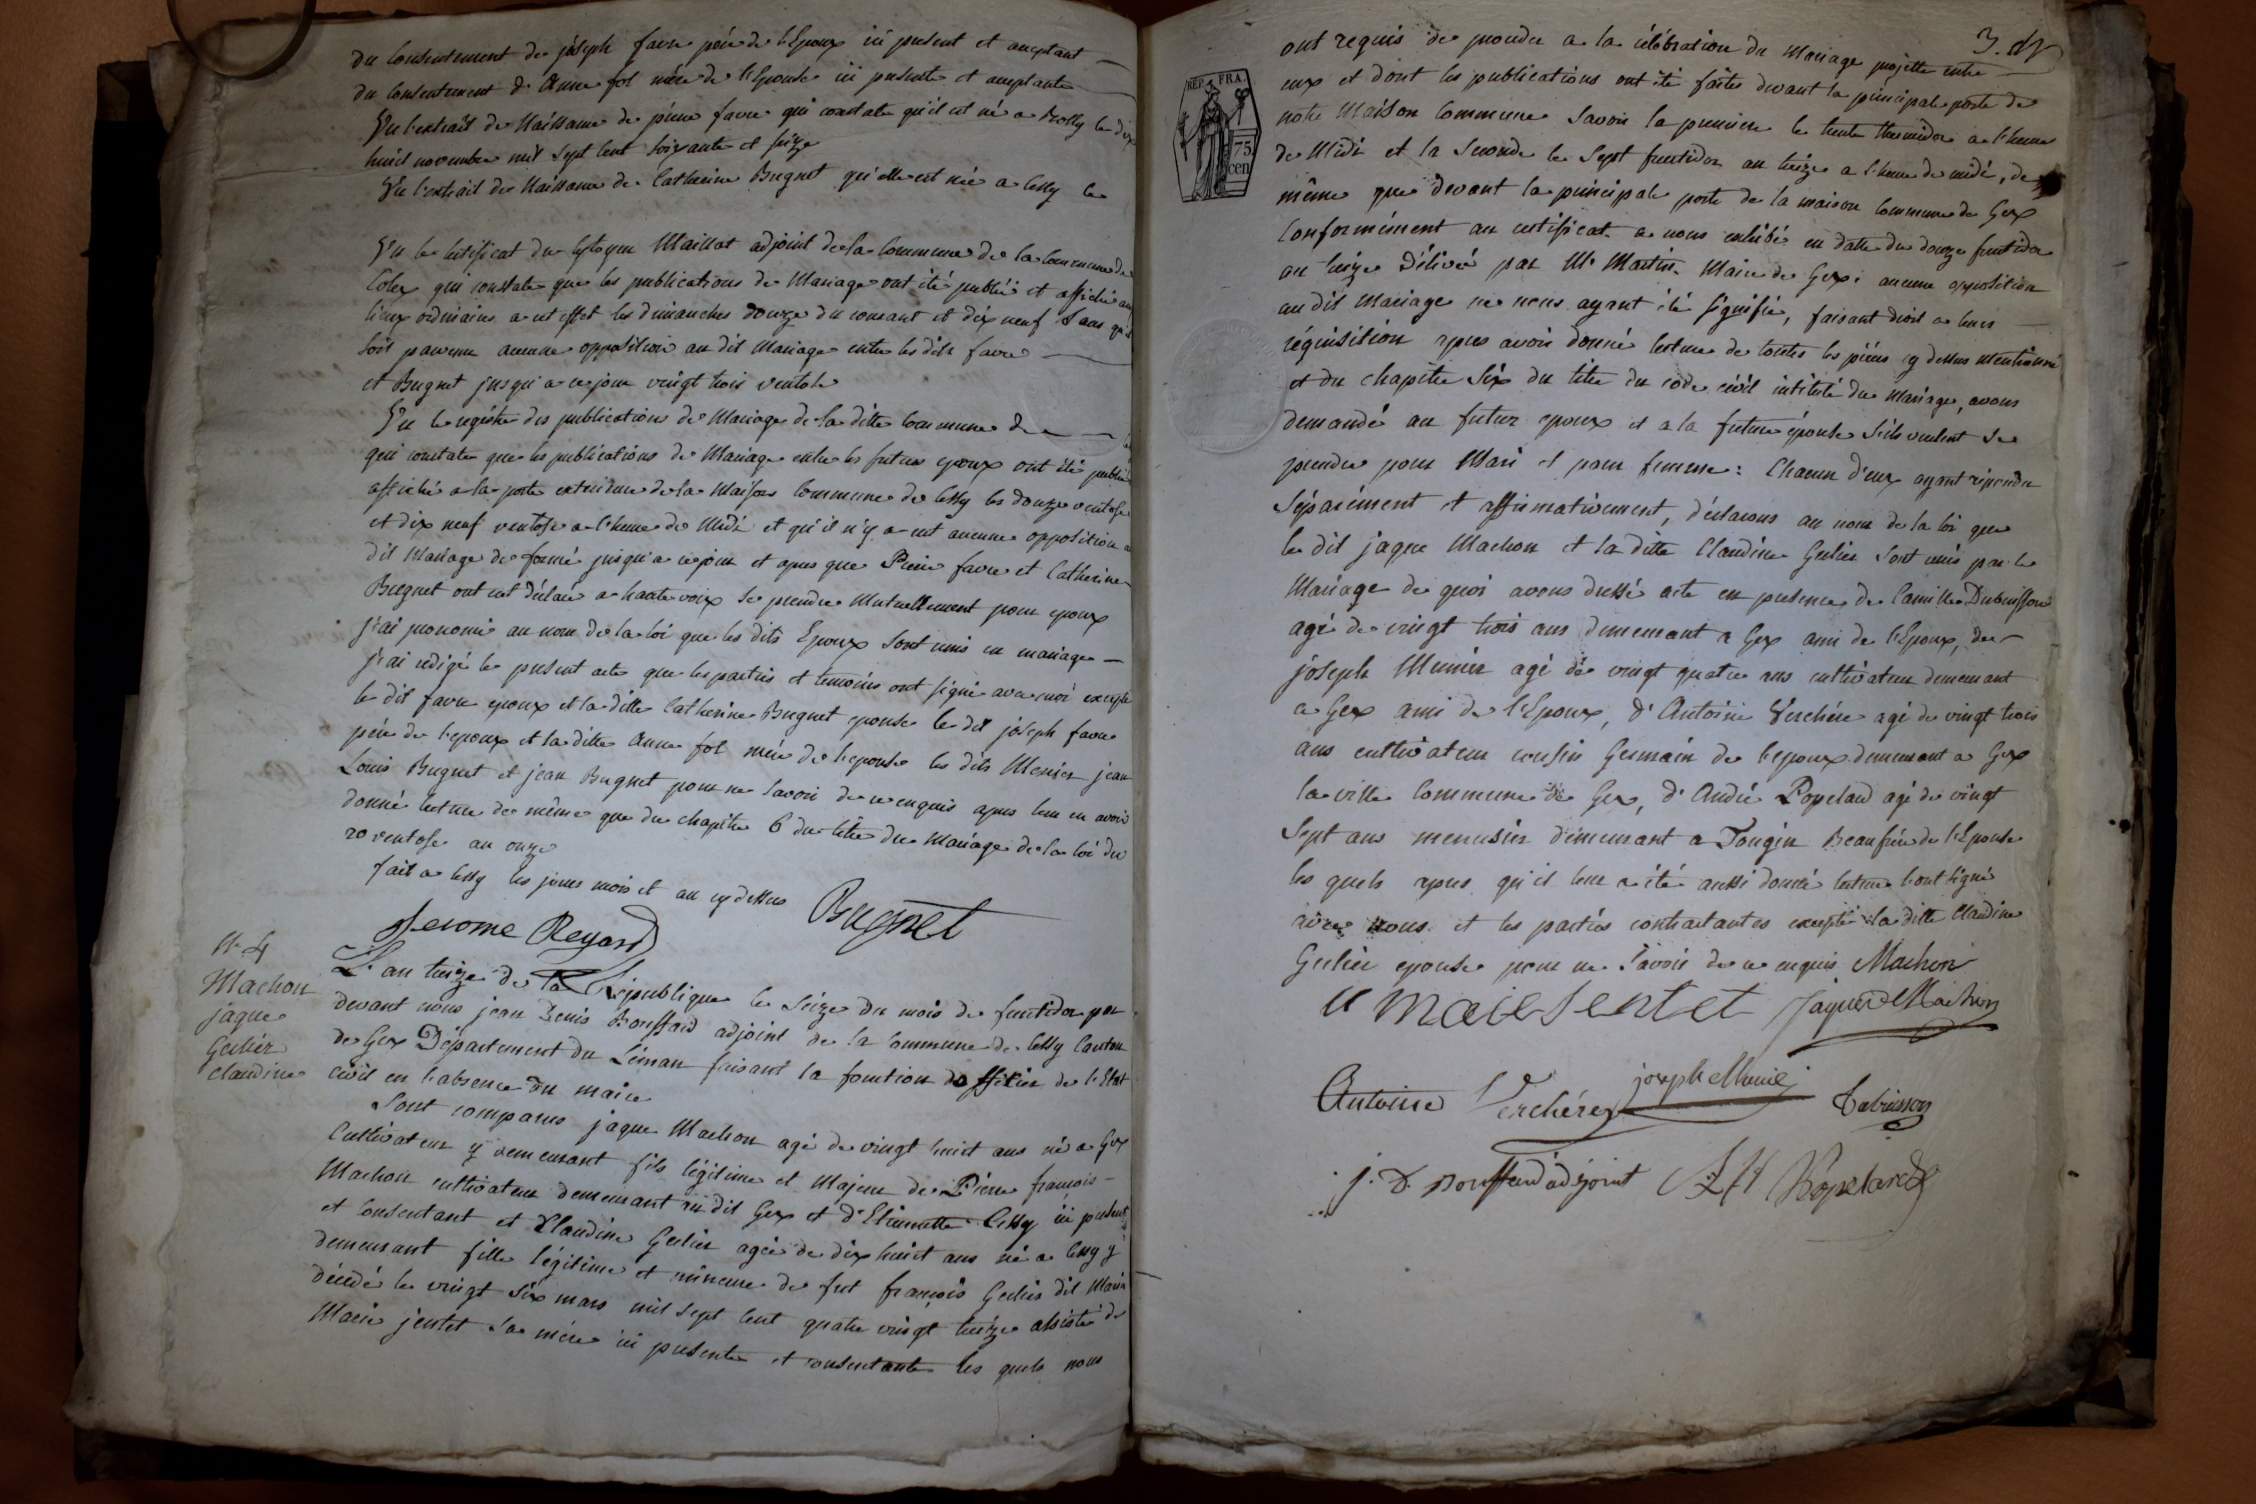 du Consentement de joseph favre pére de l'Epoux ici present et aceptant
du Consentement d'Anne fol mére de l'Epouse ici presente et aceptante
Vu l'extrait de Naissance de pierre favre qui constate qu'il est né a the dix
huit novembre mil sept cent soixante et seize
Vu l'extrait de Naissance de Catherine Bugnet qu'elle est née a Cessy le
Vu le certificat du Citoyen Maillat adjoint de la Commune de la Commune de
Colex qui constate que les publications de Mariage ont été publié et affiché aux
lieux ordinaires a cet effet les dimanches douze du courant et dix neuf sans qu'il
soit parvenu aucune opposition au dit Mariage entre les dits favre
et Bugnet jusqu'a ce jour vingt trois ventose
Vu le registre des publication de Mariage de la ditte Commune de
qui constate que les publications de Mariage entre les futurs epoux ont été publié
affiché a la porte exterieure de la Maison Commune de Cessy les douze ventose
et dix neuf ventose a l'heure de Midi et qu'il n'y a eut aucune opposition a
dit Mariage de formé jusqu'a ce jour et apres que Pierre favre et Catherine
Bugnet ont eut déclaré a haute voix se prendre Mutuellement pour epoux
j'ai prononcé au nom de la loi que les dits Epoux sont unis en mariage
j'ai redigé le present acte que les parties et temoins ont signé avec moi excepté
le dit favre epoux et la ditte Catherine Bugnet epouse le dit joseph favre
pére de l'epoux et la ditte Anne fol mére de l'epouse les dits Mesnier jean
Louis Bugnet et jean Bugnet pour ne savoir de ce enquis apres leur en avoir
donné lecture de même que du chapitre 6 du titre du Mariage de la loi du
20 ventose an onze
fait a Cessy les jours mois et an cy dessus Bugnet
Jerome Regard
N. 4
Machon
jaque
Gerlier
Claudine
L'an treize de la République le seize du mois de fructidor par
devant nous jean Denis Bouffard adjoint de la Commune de Cessy Canton
de Gex Département du Léman faisant la fonction d'officier de l'Etat
civil en l'absence du maire
Sont comparus jaque Machon agé de vingt huit ans né a Gex
Cultivateur y demeurant fils légitime et Majeur de Pierre francois
Machon cultivateur demeurant au dit Gex et d'Etiennette Cessy ici present
et Consentant et Claudine Gerlier agée de dix huit ans né a Cessy y
demeurant fille légitime et mineure de feu françois Gerlier dit Marin
décédé le vingt six mars mil sept cent quatre vingt treize assisté de
Marie jentet sa mére ici presente et consentante les quels nous
3.
REP. FRA.
75
cen
ont requis de proceder a la célébration du Mariage projetté entre
eux et dont les publications ont été faites devant la principale porte de
notre Maison Commune Savoir la premiere le trente thermidor a l'heure
de Midi et la seconde le sept fructidor an treize a l'heure de midi, de
même que devant la principale porte de la maison Commune de Gex
Conformément au certificat a nous exhibé en datte du douze fructidor
an treize Délivré par Mr Martin Maire de Gex: aucune opposition
au dit Mariage ne nous ayant été signifié, faisant droit a leur
réquisition apres avoir donné lecture de toutes les piéces cy dessus mentionné
et du chapitre six du titre du code civil intitulé du Mariage, avons
demandé au futur epoux et a la future épouse s'ils veulent se
prendre pour Mari et pour femme: Chacun d'eux ayant répondu
séparément et affirmativement, déclarons au nom de la loi que
le dit jaque Machon et la ditte Claudine Gerlier sont unis par le
Mariage de quoi avons dressé acte en presence de Camille Dubuisson
agé de vingt trois ans demeurant a Gex ami de l'Epoux, de
joseph Munier agé de vingt quatre ans cultivateur demeurant
a Gex ami de l'Epoux, d'Antoine Verchére agé de vingt trois
ans cultivateur cousin Germain de l'epoux demeurant a Gex
la ville Commune de Gex, d'André Popelard agé de vingt
sept ans menusier demeurant a Tougin Beaufrére de l'Epouse
les quels apres qu'il leur a été aussi donné lecture l'ont signé
avec nous et les parties contractantes excepté la ditte Claudine
Gerlier epouse pour ne savoir de ce enquis Machon
Marie Jentet Jaque Machon
Antoine Verchére joseph Munier Dubuisson
j. D. Bouffard adjoint Popelard